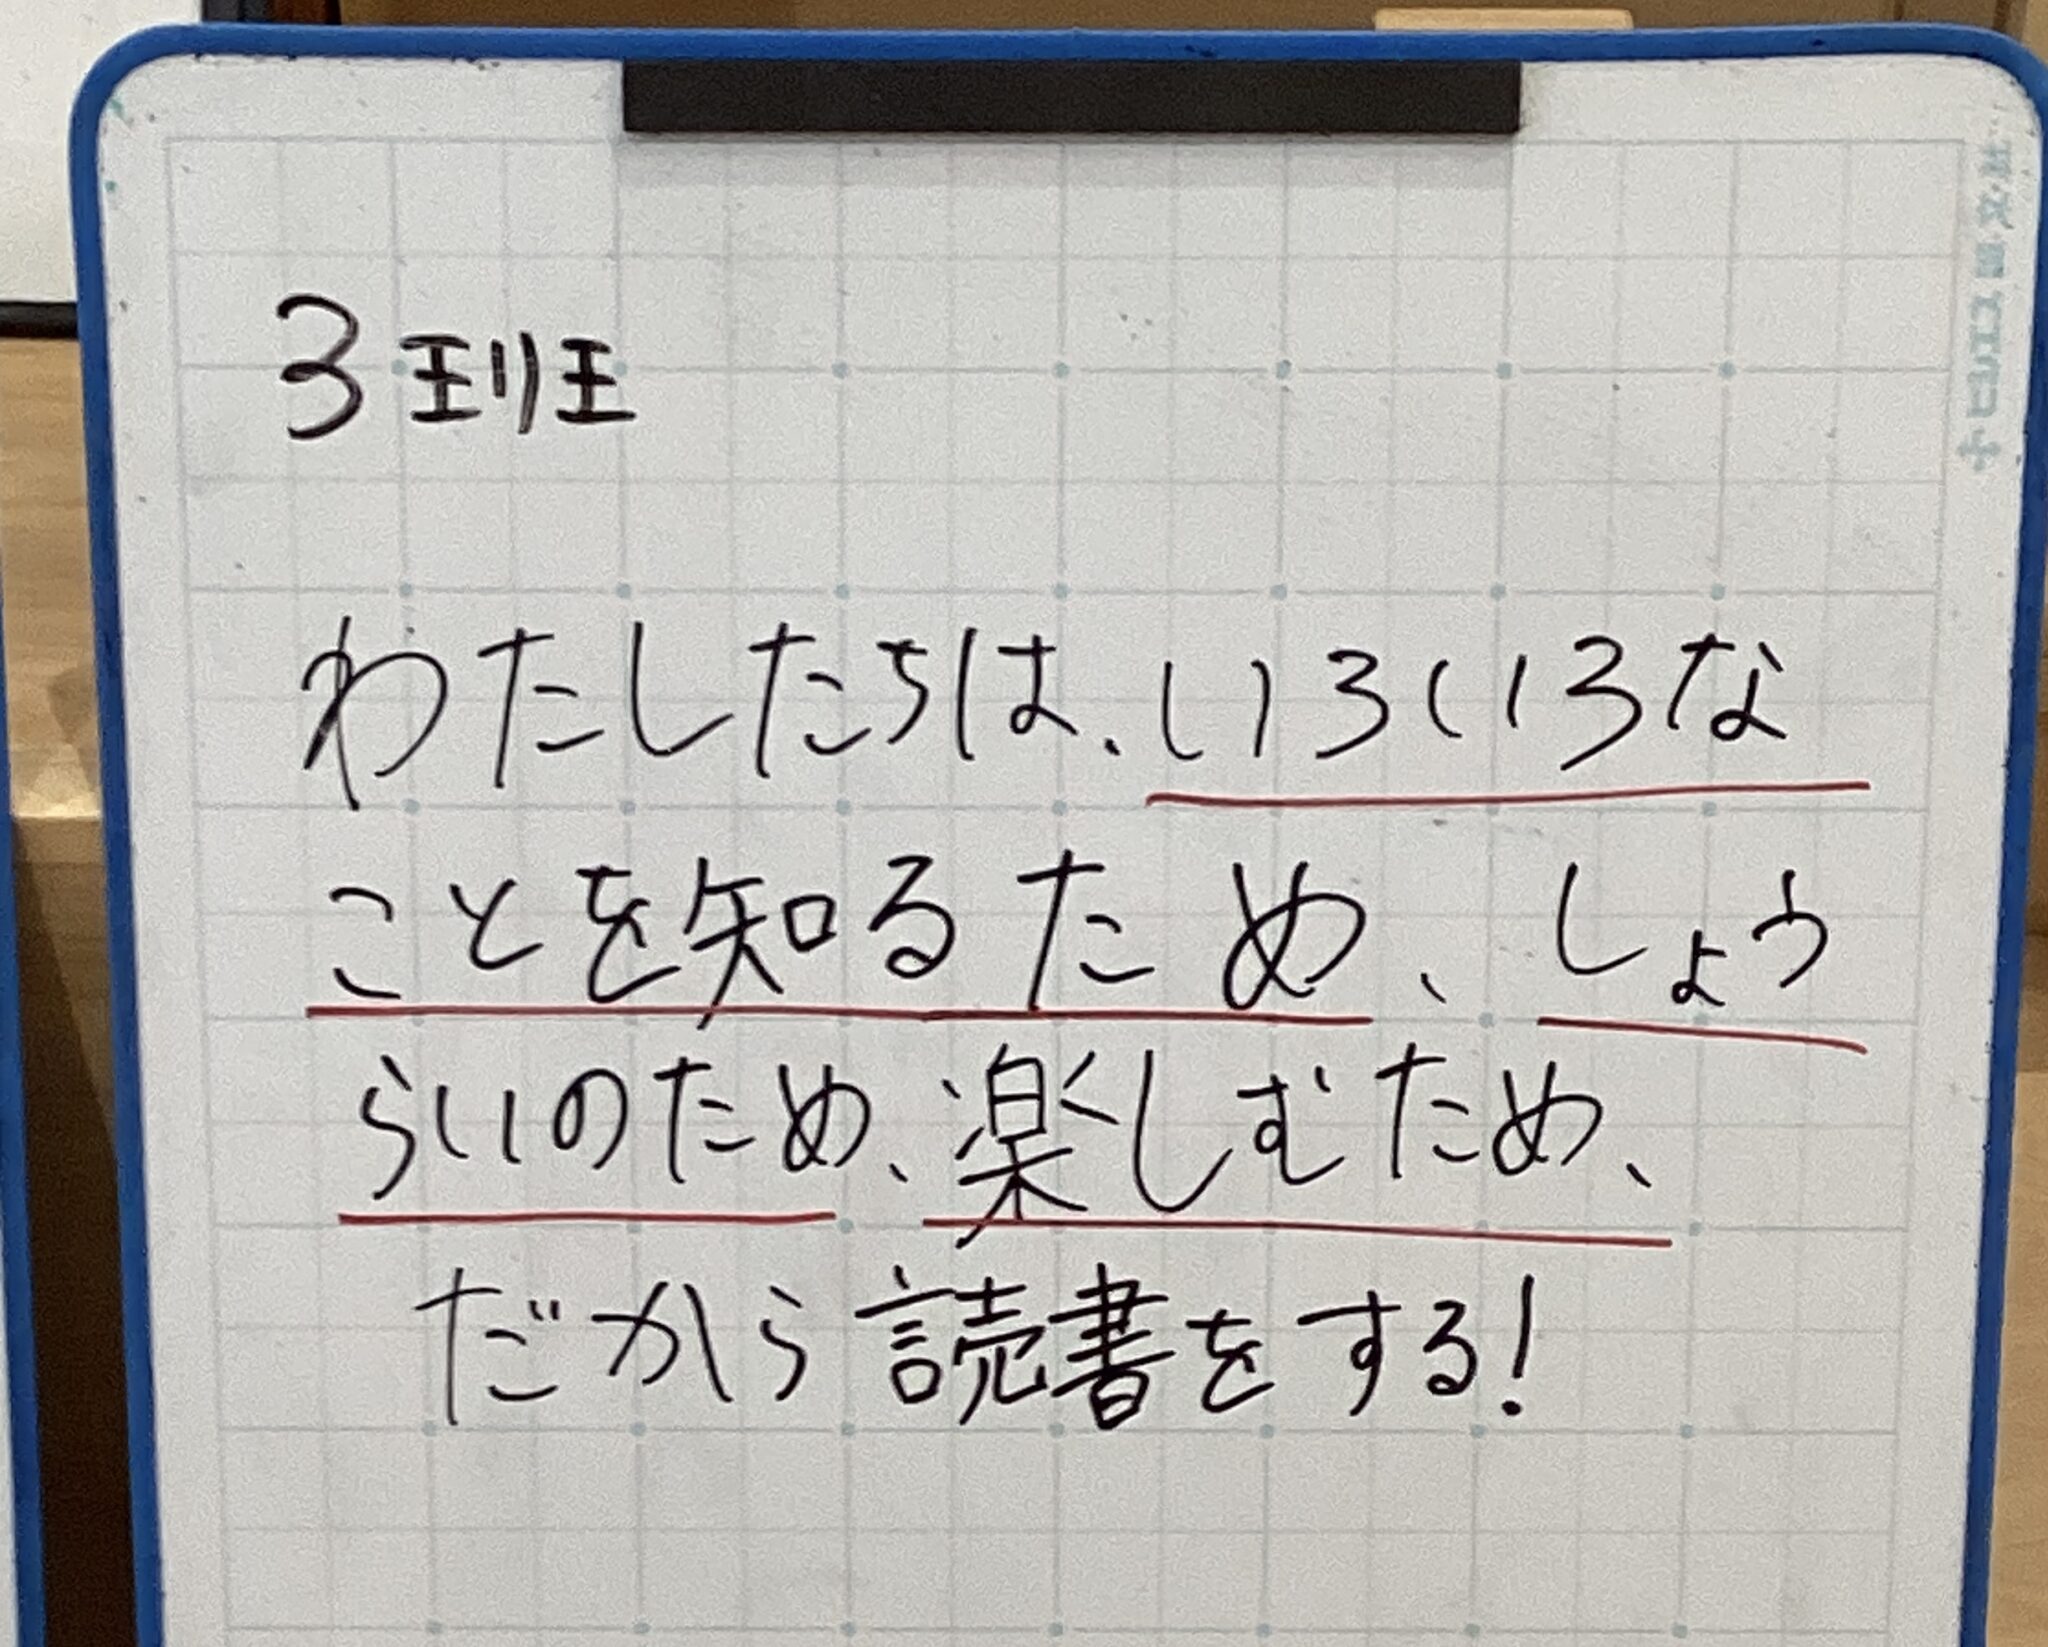 3班
わたしたちは、いろいろな
ことを知るため、しょう
らいのため、楽しむため、
だから読書をする!